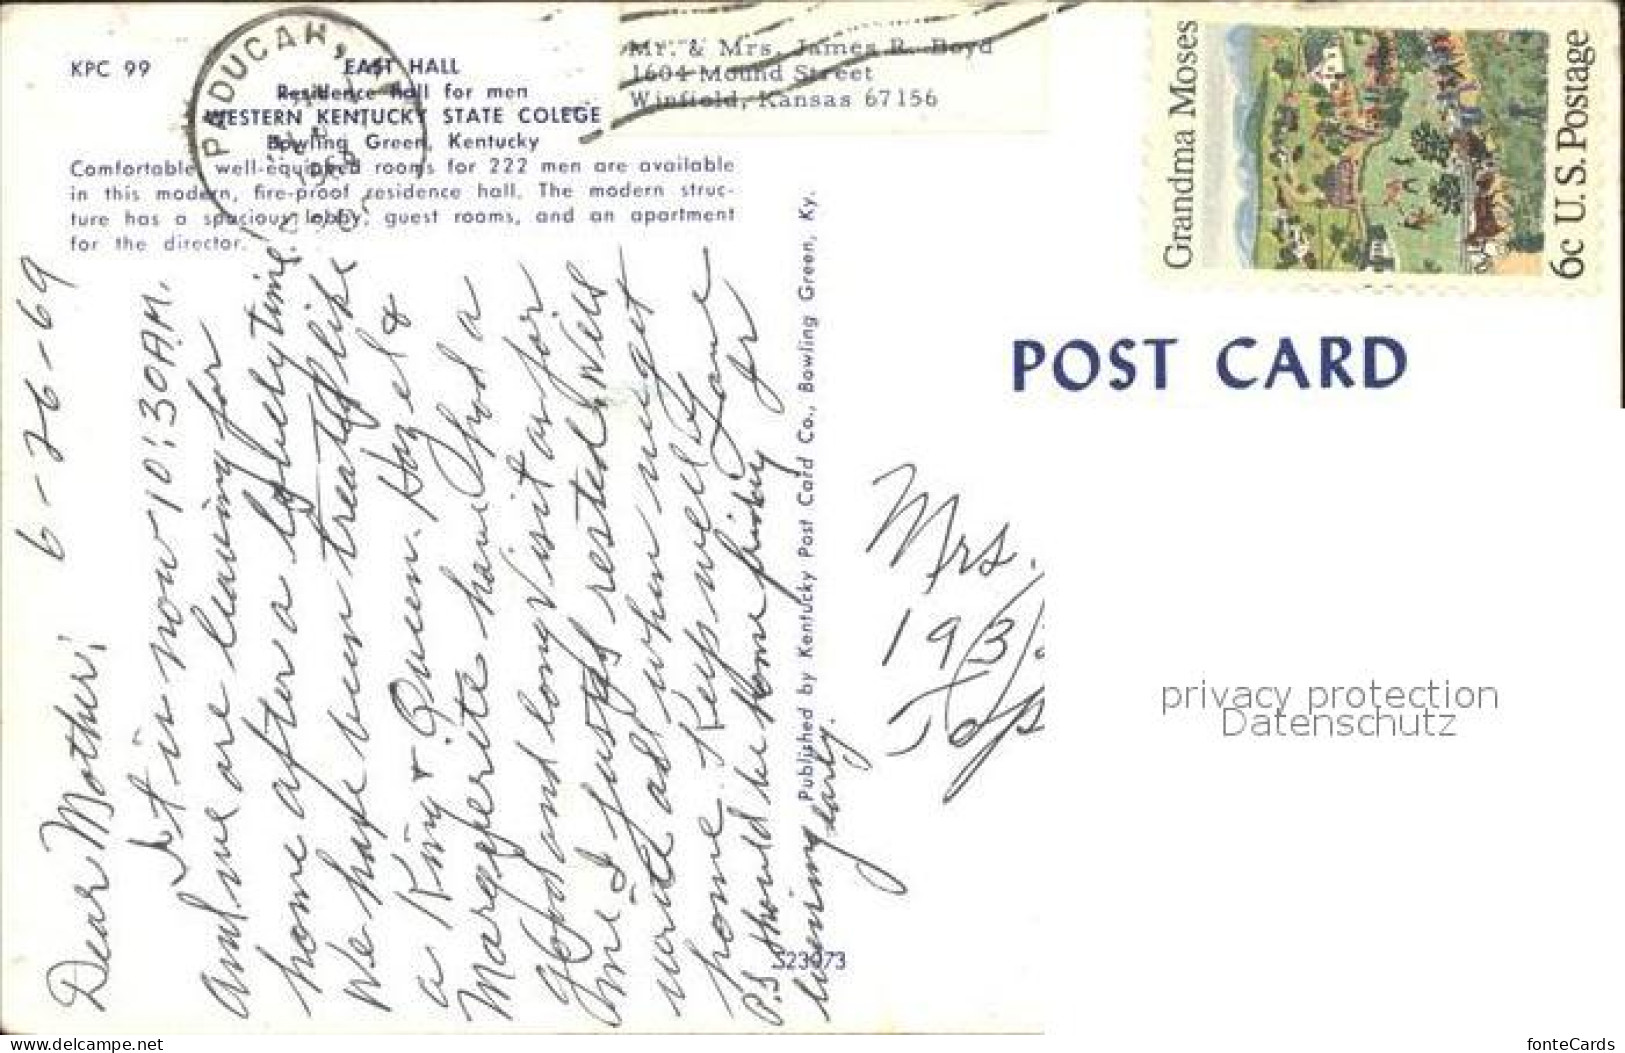 KPC 99
EAST HALL
Residence hall for men
WESTERN KENTUCKY STATE COLEGE
Bowling Green, Kentucky
Comfortable, well-equipped rooms for 222 men are available
in this modern, fire-proof residence hall. The modern struc-
ture has a spacious lobby, guest rooms, and an apartment
for the director.
PADUCAH,
Mr. & Mrs. James R. Boyd
1604 Mound Street
Winfield, Kansas 67156
Grandma Moses
6c U.S. Postage
POST CARD
6-26-69
Dear Mother:
It is now 10:30 A.M.
and we are leaving for
home after a lovely time.
We have been treated like
a King & Queen. Hazel &
Marguerite have had a
good and long visit and for
me I just rested. Will
write all when we get
home. Keep well. Love
Jr
P.S. Should be home friday
evening early.
Published by Kentucky Post Card Co., Bowling Green, Ky.
S23073
Mrs.
193
Top
privacy protection
Datenschutz
www.delcampe.net
fonteCards